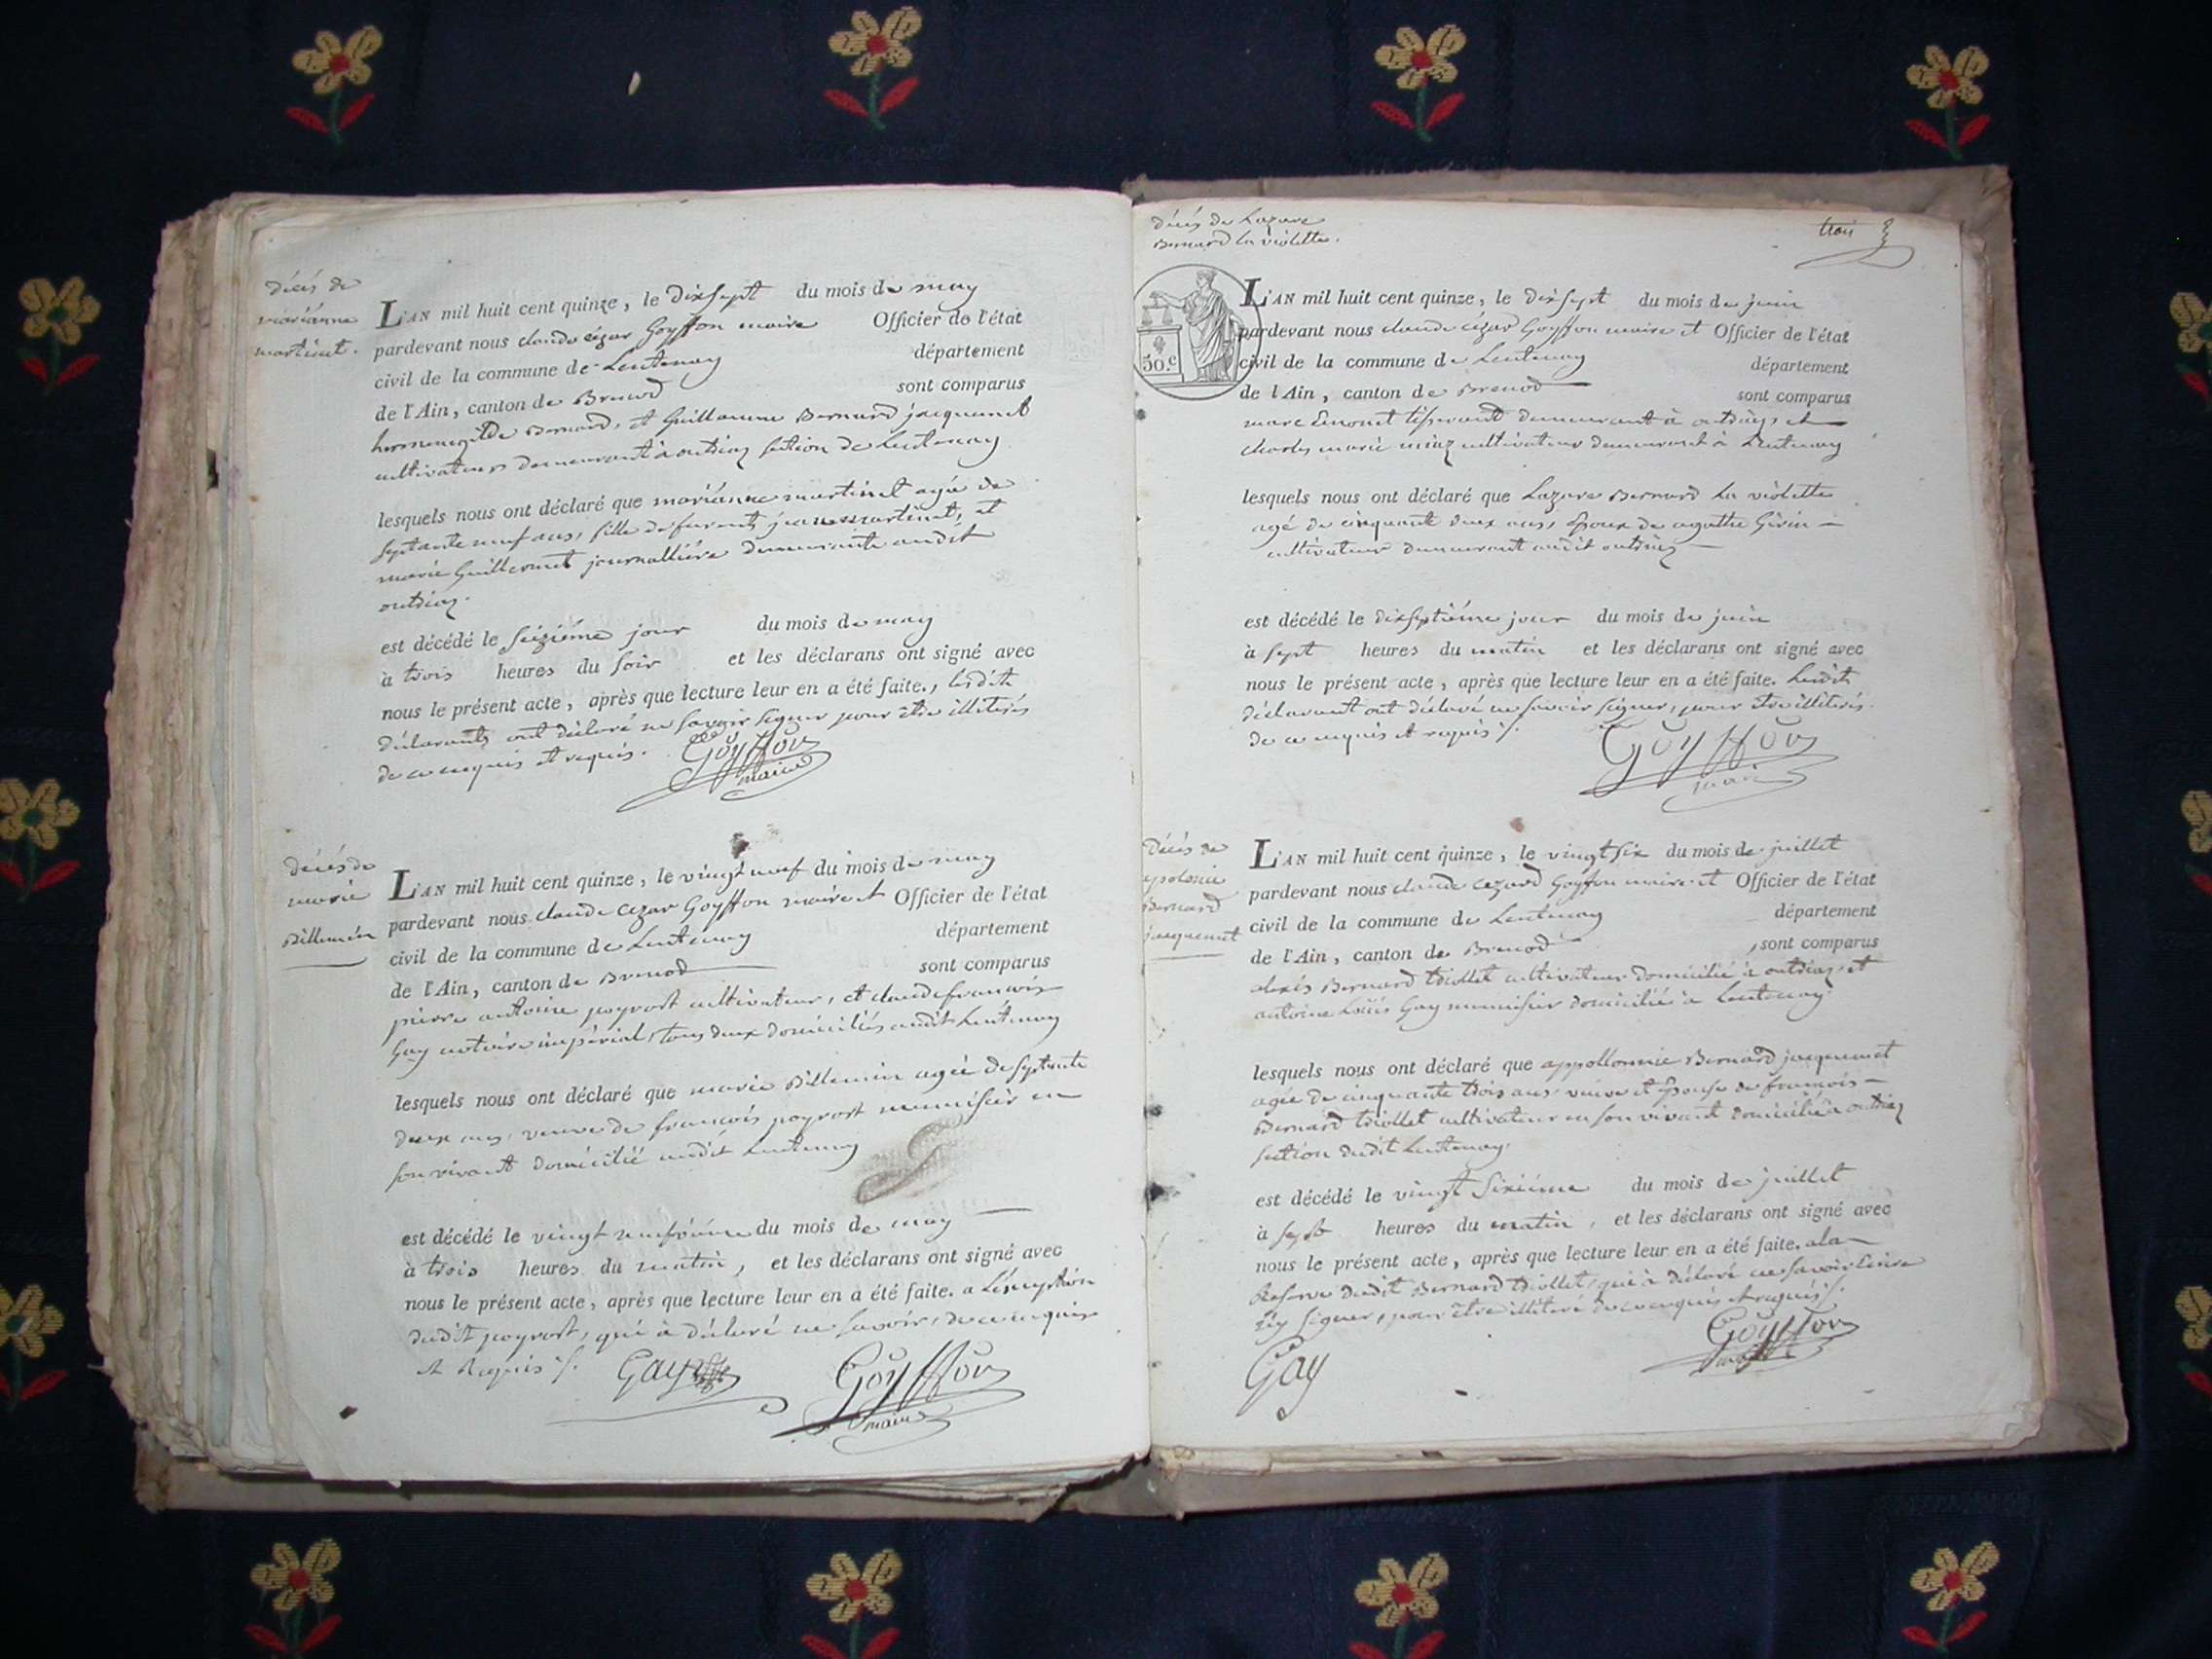 décès de
marianne
martinet.
L'AN mil huit cent quinze, le dixsept du mois de may
pardevant nous claude cézar Goyffon maire Officier de l'état
civil de la commune de Lentenay département
de l'Ain, canton de Brenod sont comparus
hermenegilde Bernard, et Guillaume Bernard jacquemet
cultivateurs demeurant à outriaz section de Lentenay
lesquels nous ont déclaré que marianne martinet agée de
septante neuf ans, fille de furents jean martinet, et
marie Guillermet journalliére demeurante audit
outriaz.
est décédé le seiziéme jour du mois de may
à trois heures du soir et les déclarans ont signé avec
nous le présent acte, après que lecture leur en a été faite., lesdits
déclarants ont déclaré ne savoir signer pour être illiterés
de ce enquis et requis. Goyffon
maire
décés de
marie
Billemin
L'AN mil huit cent quinze, le vingt neuf du mois de may
pardevant nous claude cezar Goyffon maire et Officier de l'état
civil de la commune de Lentenay département
de l'Ain, canton de Brenod sont comparus
pierre antoine poyrost cultivateur, et claude francois
Gay notaire impérial, tous deux domiciliés audit Lentenay
lesquels nous ont déclaré que marie Billemin agée de septante
deux ans, veuve de francois poyrost menuisier en
son vivant domicilié audit Lentenay
est décédé le vingt neufviéme du mois de may
à trois heures du matin, et les déclarans ont signé avec
nous le présent acte, après que lecture leur en a été faite. a L'éxception
dudit poyrost, qui à déclaré ne savoir, de ce enquis
et Requis ./. Gay Goyffon
maire
décés de Lazare
Bernard la violette.
trois
50.c
L'AN mil huit cent quinze, le dixsept du mois de juin
pardevant nous claude cézar Goyffon maire et Officier de l'état
civil de la commune de Lentenay département
de l'Ain, canton de Brenod sont comparus
marc tisserant demeurant à outriaz, et
charles marie cultivateur demeurant à Lentenay
lesquels nous ont déclaré que Lazare Bernard La violette
agé de cinquante deux ans, Epoux de agathe Girin
cultivateur demeurant audit outriaz
est décédé le dixseptiéme jour du mois de juin
à sept heures du matin et les déclarans ont signé avec
nous le présent acte, après que lecture leur en a été faite. Lesdits
déclarant ont déclaré ne savoir signer, pour etre illiterés.
de ce enquis et requis ./. Goyffon
maire
Décés de
apolonie
Bernard
jacquemet
L'AN mil huit cent quinze, le vingt six du mois de juillet
pardevant nous claude cezard Goyffon maire et Officier de l'état
civil de la commune de Lentenay département
de l'Ain, canton de Brenod , sont comparus
alexis Bernard triollet cultivateur domicilié à outriaz, et
antoine Loüis Gay menuisier domicilié à Lentenay.
lesquels nous ont déclaré que appollonnie Bernard jacquemet
agée de cinquante trois ans veuve et Epouse de francois
Bernard triollet cultivateur en son vivant domicilié à outriaz
section dudit Lentenay.
est décédé le vingt Sixiéme du mois de juillet
à sept heures du matin, et les déclarans ont signé avec
nous le présent acte, après que lecture leur en a été faite. a la
Reserve dudit Bernard triollet, qui à déclaré ne savoir Ecrire
ny signer, pour être illiteré de ce enquis et requis ./.
Gay Goyffon
maire